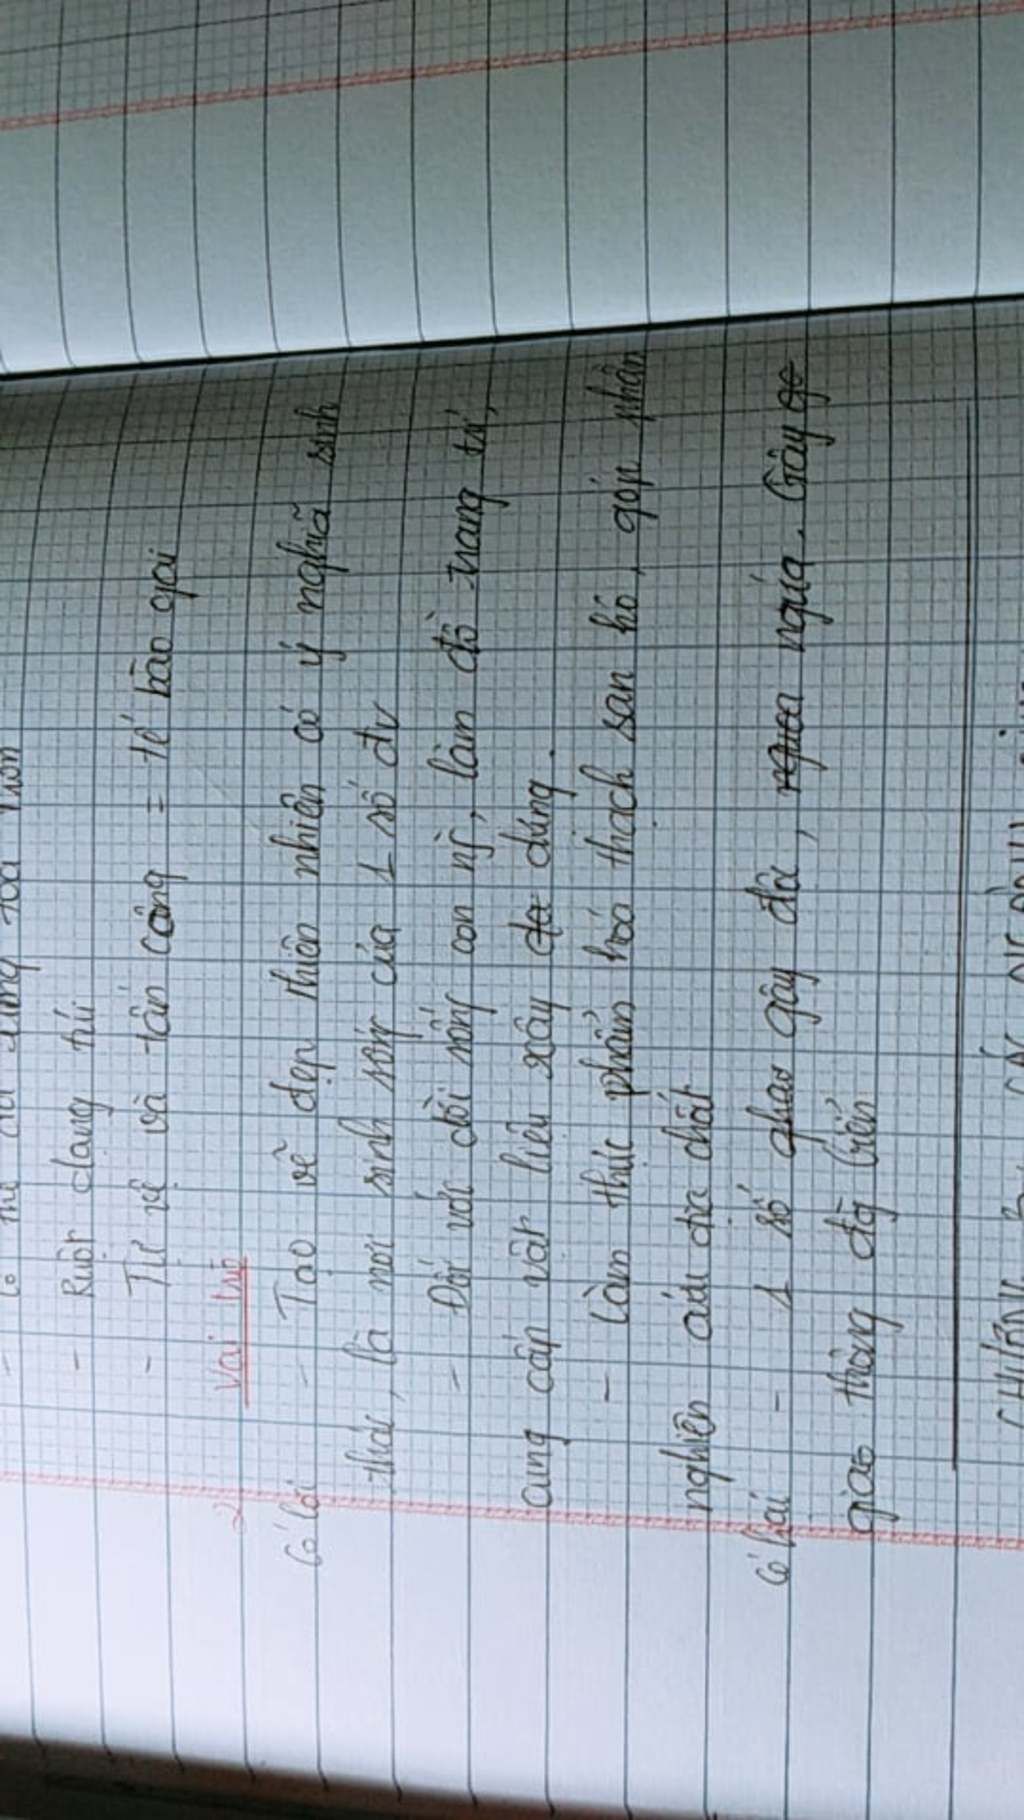 - Ruột dạng túi
- Tự vệ và tấn công = tế bào gai
2 Vai trò
Có lợi - Tạo vẻ đẹp thiên nhiên có ý nghĩa sinh
thái, là nơi sinh sống của 1 số đv
- Đối với đời sống con ng, làm đồ trang trí,
cung cấp vật liệu xây dúng.
- Làm thực phẩm hóa thạch san hô, góp phần
nghiên cứu địa chất
Có hại - 1 số gây độc, ngứa. Gây
giao thông biển